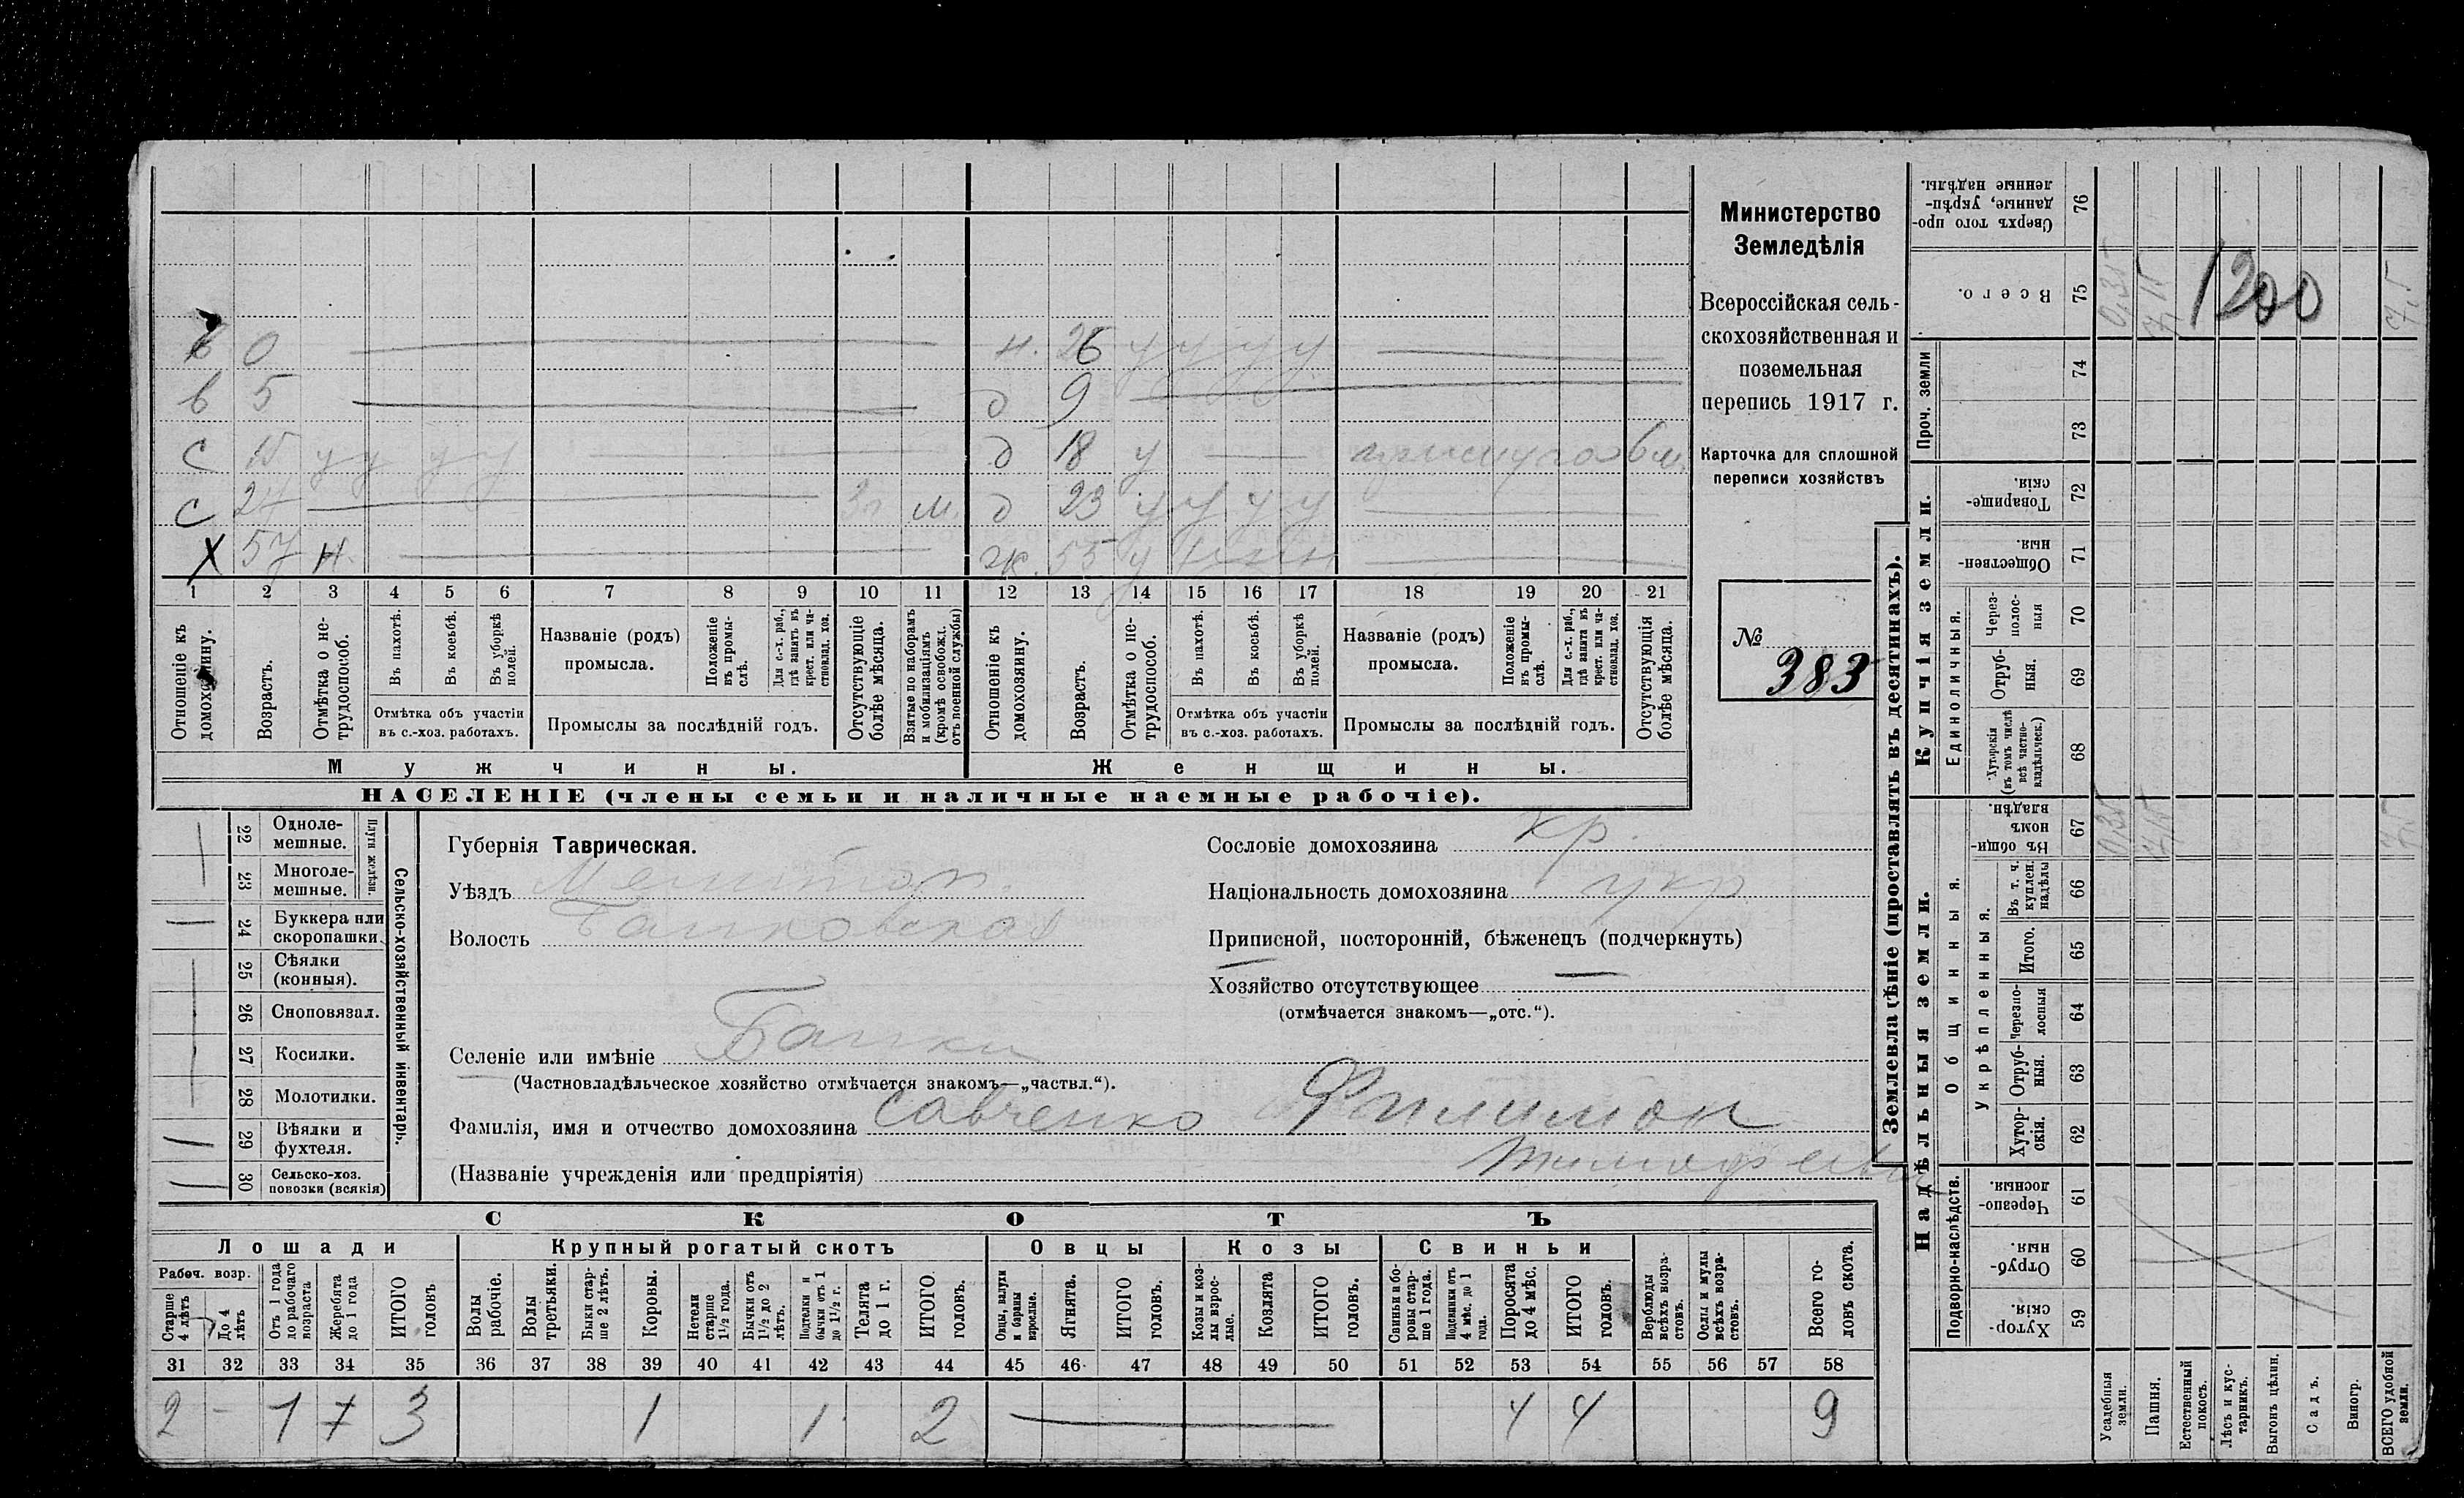 Министерство
Земледѣлія
Всероссійская сель-
скохозяйственная и
поземельная
перепись 1917 г.
Карточка для сплошной
переписи хозяйствъ
№ 383
в 0 н. 26 у у у у
в 5 д 9
с 15 у у у у д 18 у 6 м.
с 24 м. д 23 у у у у
Х 57 н. ж. 55 у
1 2 3 4 5 6 7 8 9 10 11 12 13 14 15 16 17 18 19 20 21
Отношеніе къ домохозяину.
Возрастъ.
Отмѣтка о не-трудоспособ.
Въ пахотѣ.
Въ косьбѣ.
Въ уборкѣ полей.
Отмѣтка объ участіи въ с.-хоз. работахъ.
Названіе (родъ) промысла.
Положеніе въ промы-слѣ.
Для с.-х. раб., гдѣ занятъ въ крест. или ча-стновлад. хоз.
Промыслы за послѣдній годъ.
Отсутствующіе болѣе мѣсяца.
Взятые по наборамъ и мобилизаціямъ (кромѣ освобожд. отъ военной службы)
Отношеніе къ домохозяину.
Возрастъ.
Отмѣтка о не-трудоспособ.
Въ пахотѣ.
Въ косьбѣ.
Въ уборкѣ полей.
Отмѣтка объ участіи въ с.-хоз. работахъ.
Названіе (родъ) промысла.
Положеніе въ промы-слѣ.
Для с.-х. раб., гдѣ занята въ крест. или ча-стновлад. хоз.
Промыслы за послѣдній годъ.
Отсутствующія болѣе мѣсяца.
Мужчины. Женщины.
НАСЕЛЕНІЕ (члены семьи и наличные наемные рабочіе).
Сельско-хозяйственный инвентарь.
Плуги желѣзн.
22 Одноле-мешные.
23 Многоле-мешные.
24 Буккера или скоропашки.
25 Сѣялки (конныя).
26 Сноповязал.
27 Косилки.
28 Молотилки.
29 Вѣялки и фухтеля. 1
30 Сельско-хоз. повозки (всякія) 1
Губернія Таврическая.
Уѣздъ Мелитоп.
Волость Башковская
Селеніе или имѣніе Башки
(Частновладѣльческое хозяйство отмѣчается знакомъ—„частвл.“).
Фамилія, имя и отчество домохозяина Савченко Филимон
(Названіе учрежденія или предпріятія) Тимофеев
Сословіе домохозяина кр.
Національность домохозяина укр
Приписной, посторонній, бѣженецъ (подчеркнуть)
Хозяйство отсутствующее
(отмѣчается знакомъ—„отс.“).
СКОТЪ
Лошади Крупный рогатый скотъ Овцы Козы Свиньи
Рабоч. возр.
Старше 4 лѣтъ
До 4 лѣтъ
Отъ 1 года до рабочаго возраста
Жеребята до 1 года
ИТОГО головъ
Волы рабочіе.
Волы третьяки.
Быки стар-ше 2 лѣтъ.
Коровы.
Нетели старше 1½ года.
Бычки отъ 1½ до 2 лѣтъ.
Подтелки и бычки отъ 1 до 1½ г.
Телята до 1 г.
ИТОГО головъ.
Овцы, валухи и бараны взрослые.
Ягнята.
ИТОГО головъ.
Козы и коз-лы взрос-лые.
Козлята
ИТОГО головъ.
Свиньи и бо-ровы стар-ше 1 года.
Подсвинки отъ 4 мѣс. до 1 года.
Поросята до 4 мѣс.
ИТОГО головъ.
Верблюды всѣхъ возра-стовъ.
Ослы и мулы всѣхъ возра-стовъ.
Всего го-ловъ скота.
31 32 33 34 35 36 37 38 39 40 41 42 43 44 45 46 47 48 49 50 51 52 53 54 55 56 57 58
2 - 1 3 1 1 2 4 4 9
Землевладѣніе (проставлять въ десятинахъ).
Надѣльныя земли. Купчія земли. Проч. земли
Подворно-наслѣдств.
Общинныя.
Укрѣпленныя.
Единоличныя.
Сверхъ того про-данные, укрѣп-ленные надѣлы. 76
Всего. 75 0,35 7,15 1200 7,5
74
73
Товарище-скія. 72
Обществен-ныя. 71
Через-полос-ныя 70
Отруб-ныя. 69
Хуторскія (въ томъ числѣ всѣ частно-владѣльческ.) 68
Въ общи-номъ владѣн. 67 0,35 7,15 7,5
Въ т. ч. куплен. надѣлы 66
Итого. 65
Черезпо-лосныя 64
Отруб-ныя. 63
Хутор-скія. 62
Черезпо-лосныя. 61
Отруб-ныя. 60
Хутор-скія. 59
Усадебныя земли.
Пашня.
Естественный покосъ.
Лѣсъ и кус-тарникъ.
Выгонъ цѣлин.
Садъ.
Виногр.
ВСЕГО удобной земли.